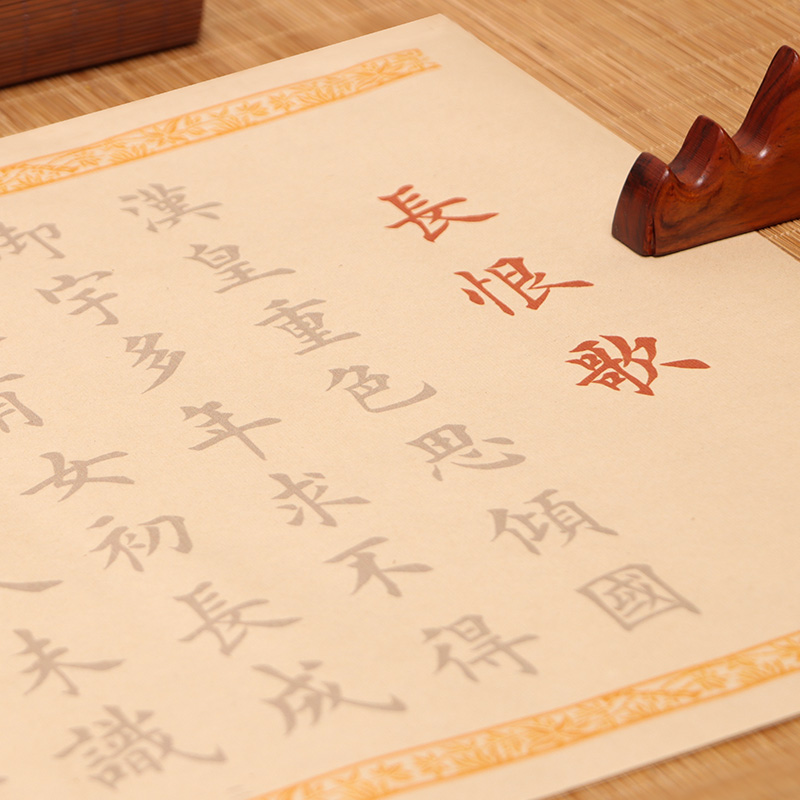 長恨歌
漢皇重色思傾國
御宇多年求不得
有女初長成
人未識